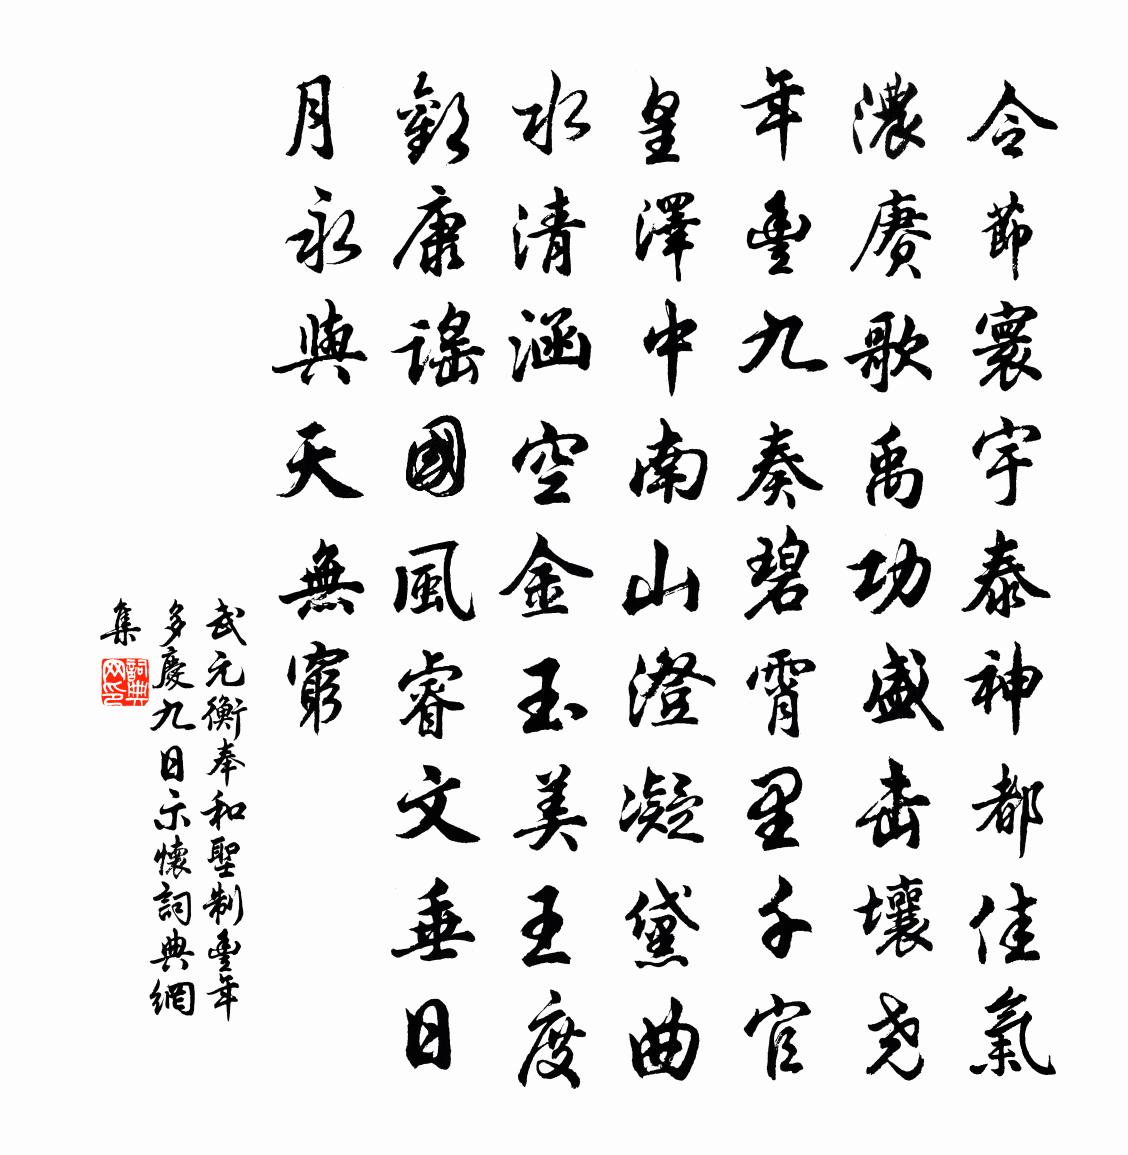 令節寰宇泰神都佳氣
濃賡歌禹功盛擊壤尧
年豐九奏碧霄里千官
皇澤中南山澄凝黛曲
水清涵空金玉美王度
歡康謠國風睿文垂日
月永與天無窮
武元衡奉和聖制豐年
多慶九日示懷詞典網
集
詞典网